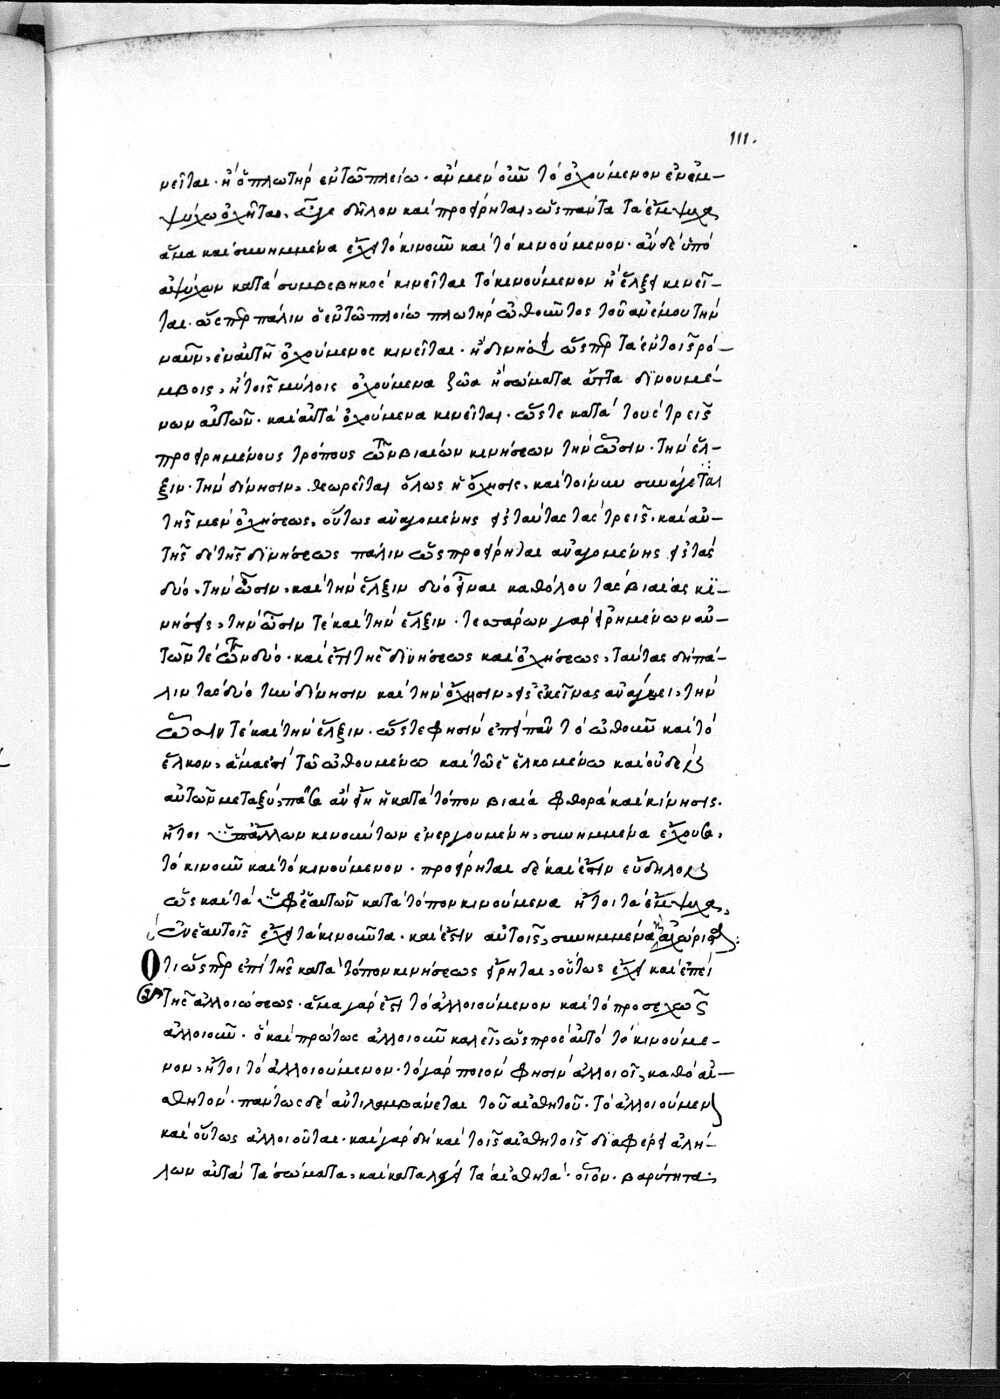 111.
νεῖται· ἢ ὁ πλωτὴρ ἐν τῷ πλοίῳ· ἂν μὲν οὖν τὸ ὀχούμενον ἐν ἐμ-
ψύχῳ ὀχῆται, δῆλον καὶ προείρηται, ὡς πάντα τὰ ἔμψυχα
ἅμα καὶ συνημμένα ἔχει τὸ κινοῦν καὶ τὸ κινούμενον· ἂν δὲ ὑπὸ
ἀψύχων κατὰ συμβεβηκὸς κινεῖται τὸ κινούμενον ἢ ἕλξει κινεῖ-
ται· ὥσπερ πάλιν ὁ ἐν τῷ πλοίῳ πλωτὴρ ὠθοῦντος τοῦ ἀνέμου τὴν
ναῦν, ἐν αὐτῇ ὀχούμενος κινεῖται· ἢ δινήσει ὥσπερ τὰ ἐν τοῖς ῥό-
μβοις, ἢ τοῖς μύλοις ὀχούμενα ζῶα ἢ σώματα ἅττα δινουμέ-
νων αὐτῶν· καὶ αὐτὰ ὀχούμενα κινεῖται· ὥστε κατὰ τοὺς τρεῖς
προειρημένους τρόπους τῶν βιαίων κινήσεων τὴν ὦσιν· τὴν ἕλ-
ξιν· τὴν δίνησιν, θεωρεῖται ὅλως ἡ ὄχησις· καὶ τοίνυν συνάγεται
τῆς μὲν ὀχήσεως, οὕτως ἀναγομένης εἰς ταύτας τὰς τρεῖς· καὶ αὐ-
τῆς δὲ τῆς δινήσεως πάλιν ὡς προείρηται ἀναγομένης εἰς τὰς
δύο, τὴν ὦσιν, καὶ τὴν ἕλξιν δύο εἶναι καθόλου τὰς βιαίας κι-
νήσεις, τὴν ὦσιν τὲ καὶ τὴν ἕλξιν· τεσσάρων γὰρ εἰρημένων αὐ-
τῶν τε τῶν δύο· καὶ ἔτι τῆς δινήσεως καὶ ὀχήσεως, ταύτας δὴ πά-
λιν τὰς δύο τὴν δίνησιν καὶ τὴν ὄχησιν, εἰς ἐκείνας ἀνάγει, τὴν
ὦσιν τὲ καὶ τὴν ἕλξιν· ὥστε φησὶν ἐπεὶ πᾶν τὸ ὠθοῦν καὶ τὸ
ἕλκον, ἅμα ἐστὶ τῷ ὠθουμένῳ καὶ τῷ ἑλκομένῳ καὶ οὐδὲν
αὐτῶν μεταξύ, πᾶσα ἂν εἴη ἡ κατὰ τόπον βιαία φθορὰ καὶ κίνησις·
ἤτοι ὑπ' ἄλλων κινούντων ἐνεργουμένη, συνημμένα ἔχουσα,
τὸ κινοῦν καὶ τὸ κινούμενον· προείρηται δὲ καὶ ἔστιν εὔδηλον
ὡς καὶ τὰ ὑφ' ἑαυτῶν κατὰ τόπον κινούμενα ἤτοι τὰ ἔμψυχα,
ἐν ἑαυτοῖς ἔχει τὰ κινοῦντα· καὶ ἔστιν αὐτοῖς, συνημμένα ἀχώριστα:
Ὅτι ὥσπερ ἐπὶ τῆς κατὰ τόπον κινήσεως εἴρηται, οὕτως ἔχει καὶ ἐπὶ
τῆς ἀλλοιώσεως· ἅμα γάρ ἐστι τὸ ἀλλοιούμενον καὶ τὸ προσεχῶς
ἀλλοιοῦν· ὃ καὶ πρώτως ἀλλοιοῦν καλεῖ, ὡς πρὸς αὐτὸ τὸ κινούμε-
νον, ἤτοι τὸ ἀλλοιούμενον· τὸ γὰρ ποιόν φησιν ἀλλοιοῖ, καθὸ αἰ-
σθητόν· πάντως δὲ ἀντιλαμβάνεται τοῦ αἰσθητοῦ· τὸ ἀλλοιούμενον
καὶ οὕτως ἀλλοιοῦται· καὶ γὰρ δὴ καὶ τοῖς αἰσθητοῖς διαφέρει ἀλή-
λων αὐτὰ τὰ σώματα, καὶ καταλήγει τὰ αἰσθητά· οἷον· βαρύτητα·